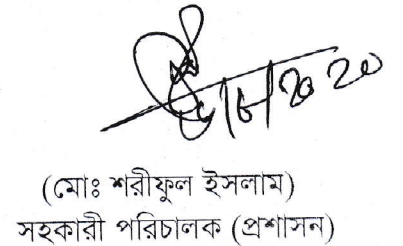 (মোঃ শরীফুল ইসলাম)
সহকারী পরিচালক (প্রশাসন)